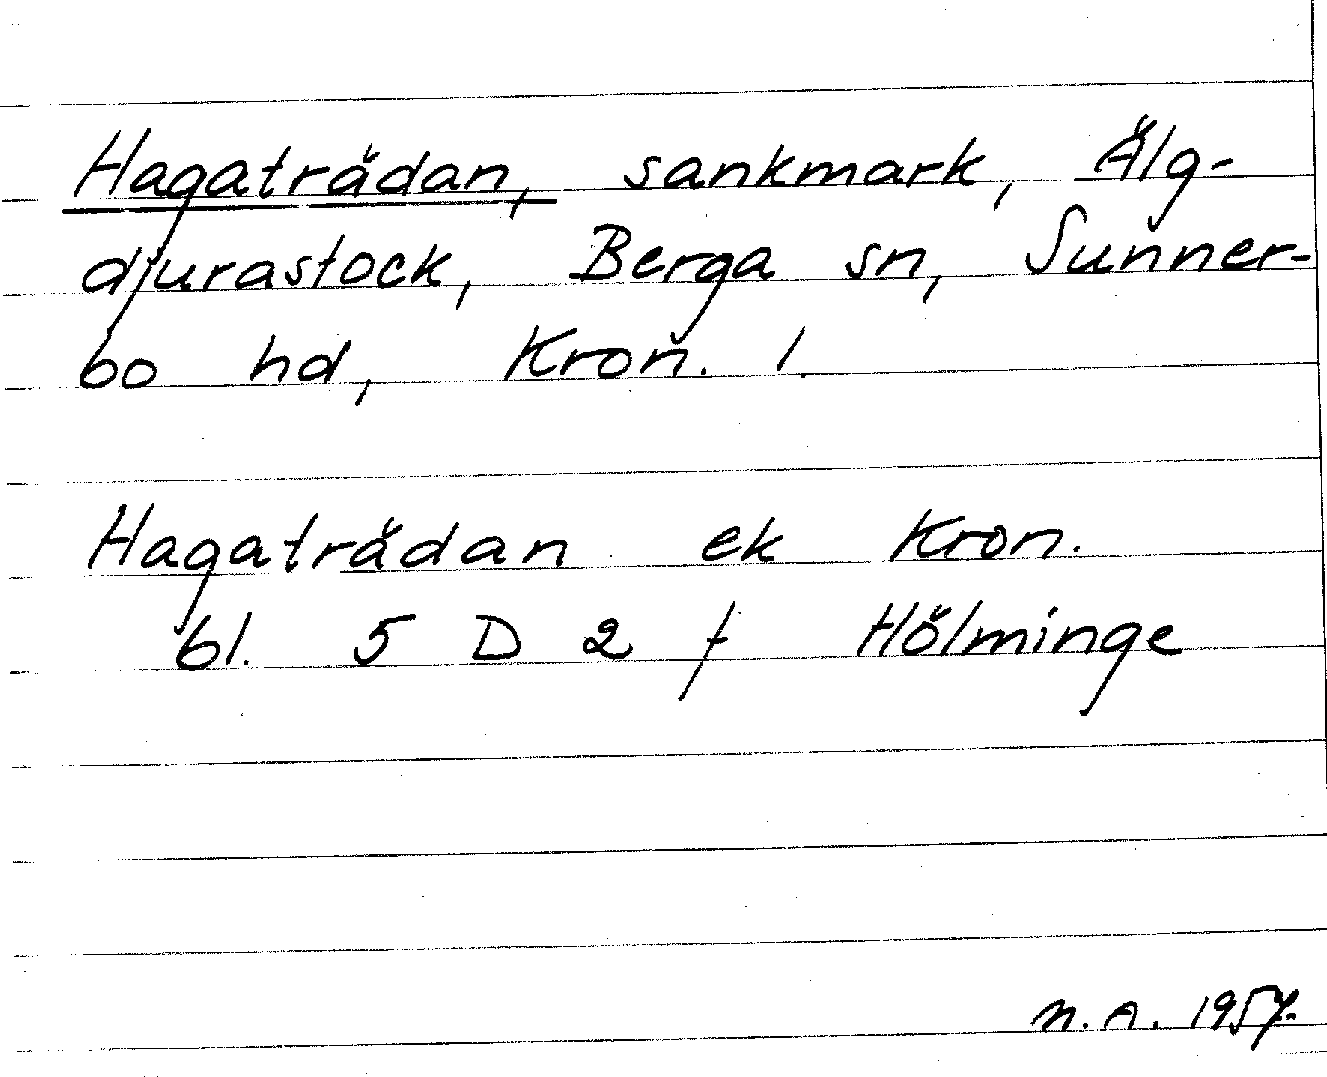 Hagaträdan, sankmark, Älg-
djurastock, Berga sn, Sunner-
bo hd, Kron. l.
Hagaträdan ek Kron.
bl. 5 D 2 f Hölminge
N.A. 1957.